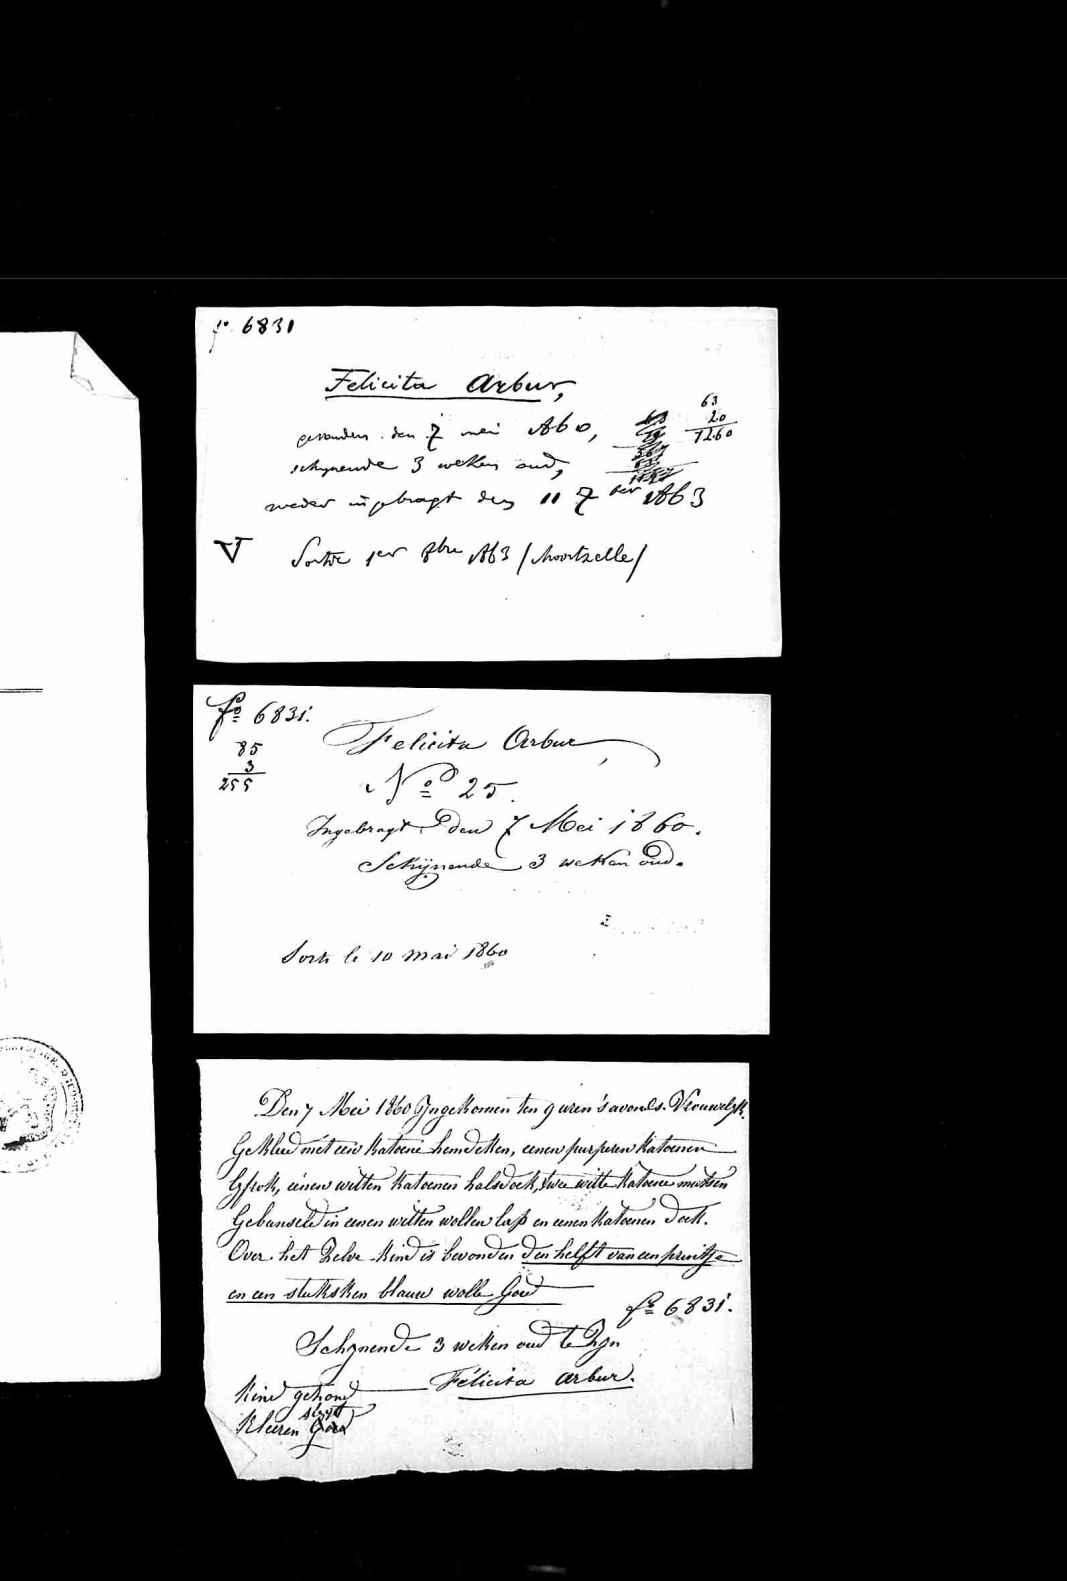 fo. 6831
Felicita Arbur,
gevonden den 7 mei 1860,
63
20
1260
schynende 3 weken oud,
weder ingebragt den 11 7ber 1863
V Sortie 1er 8bre 1863 /Moortzelle/
fo 6831.
85
3
255
Felicita Arbur,
No 25.
Ingebragt den 7 Mei 1860.
Schijnende 3 weken oud.
Sorti le 10 mai 1860
Den 7 Mei 1860 Ingekomen ten 9 uren 's avonds. Vrouwelyk.
Gekleed met een katoene hemdeken, eenen purperen katoenen
frok, eenen witten katoenen halsdoek, twee witte katoene mutsen
Gebunseld in eenen witten wollen lap en eenen katoenen doek.
Over het zelve kind is bevonden den helft van een printje
en een stuksken blauw wolle Goed
fo 6831.
Schynende 3 weken oud te zyn
Félicita Arbur.
Kind gezond
Kleeren slegt